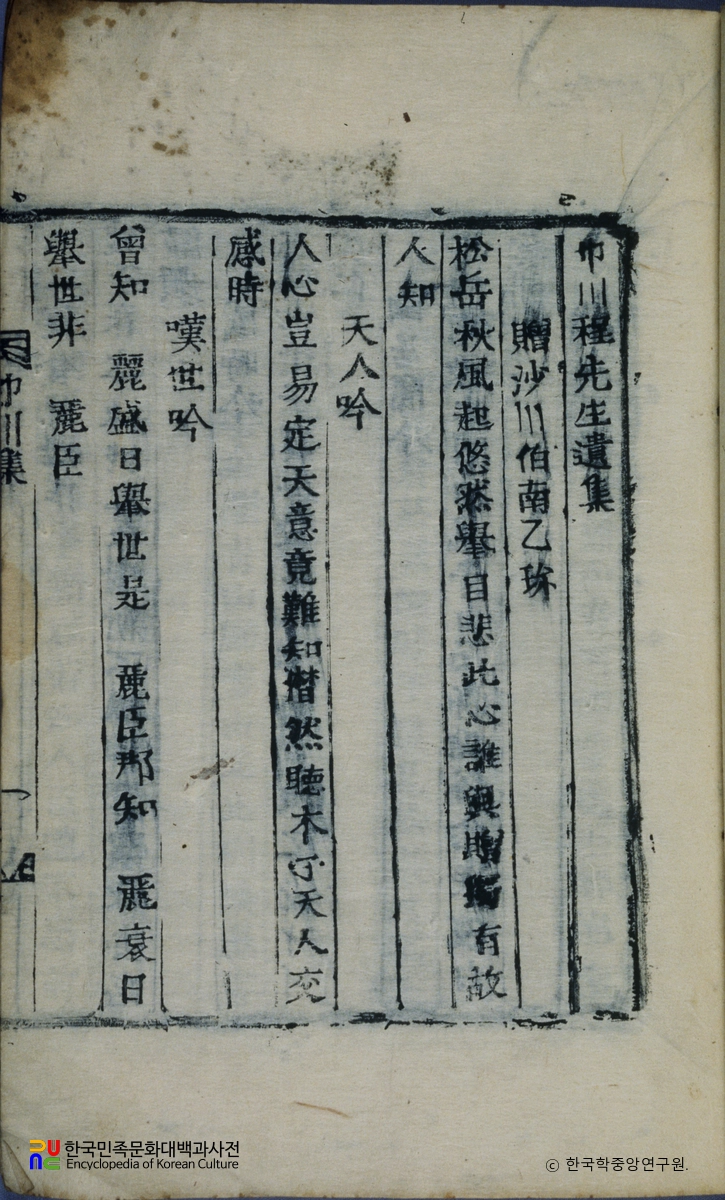 巾川程先生遺集
贈沙川伯南乙珍
松岳秋風起悠然擧目悲此心誰與贈獨有故
人知
天人吟
人心豈易定天意竟難知潜然聽木下天人交
感時
嘆世吟
曾知 麗盛日擧世是 麗臣那知 麗衰日
擧世非 麗臣
巾川集
한국민족문화대백과사전
Encyclopedia of Korean Culture
ⓒ 한국학중앙연구원.